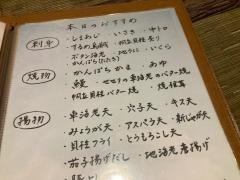 本日のおすすめ
刺身
・しまあじ ・いさき ・中トロ
・するめ烏賊 ・帆立貝柱
・ボタン海老 ・地うに ・いくら
・かんぱち
焼物
・かんぱちかま ・あゆ
・鰻 ・海老のバター焼
・帆立貝バター焼 ・焼椎茸
揚物
・車海老天 ・穴子天 ・キス天
・みょうが天 ・アスパラ天 ・新じゃが天
・貝柱フライ ・とうもろこし天
・茄子揚げだし ・地海老唐揚げ